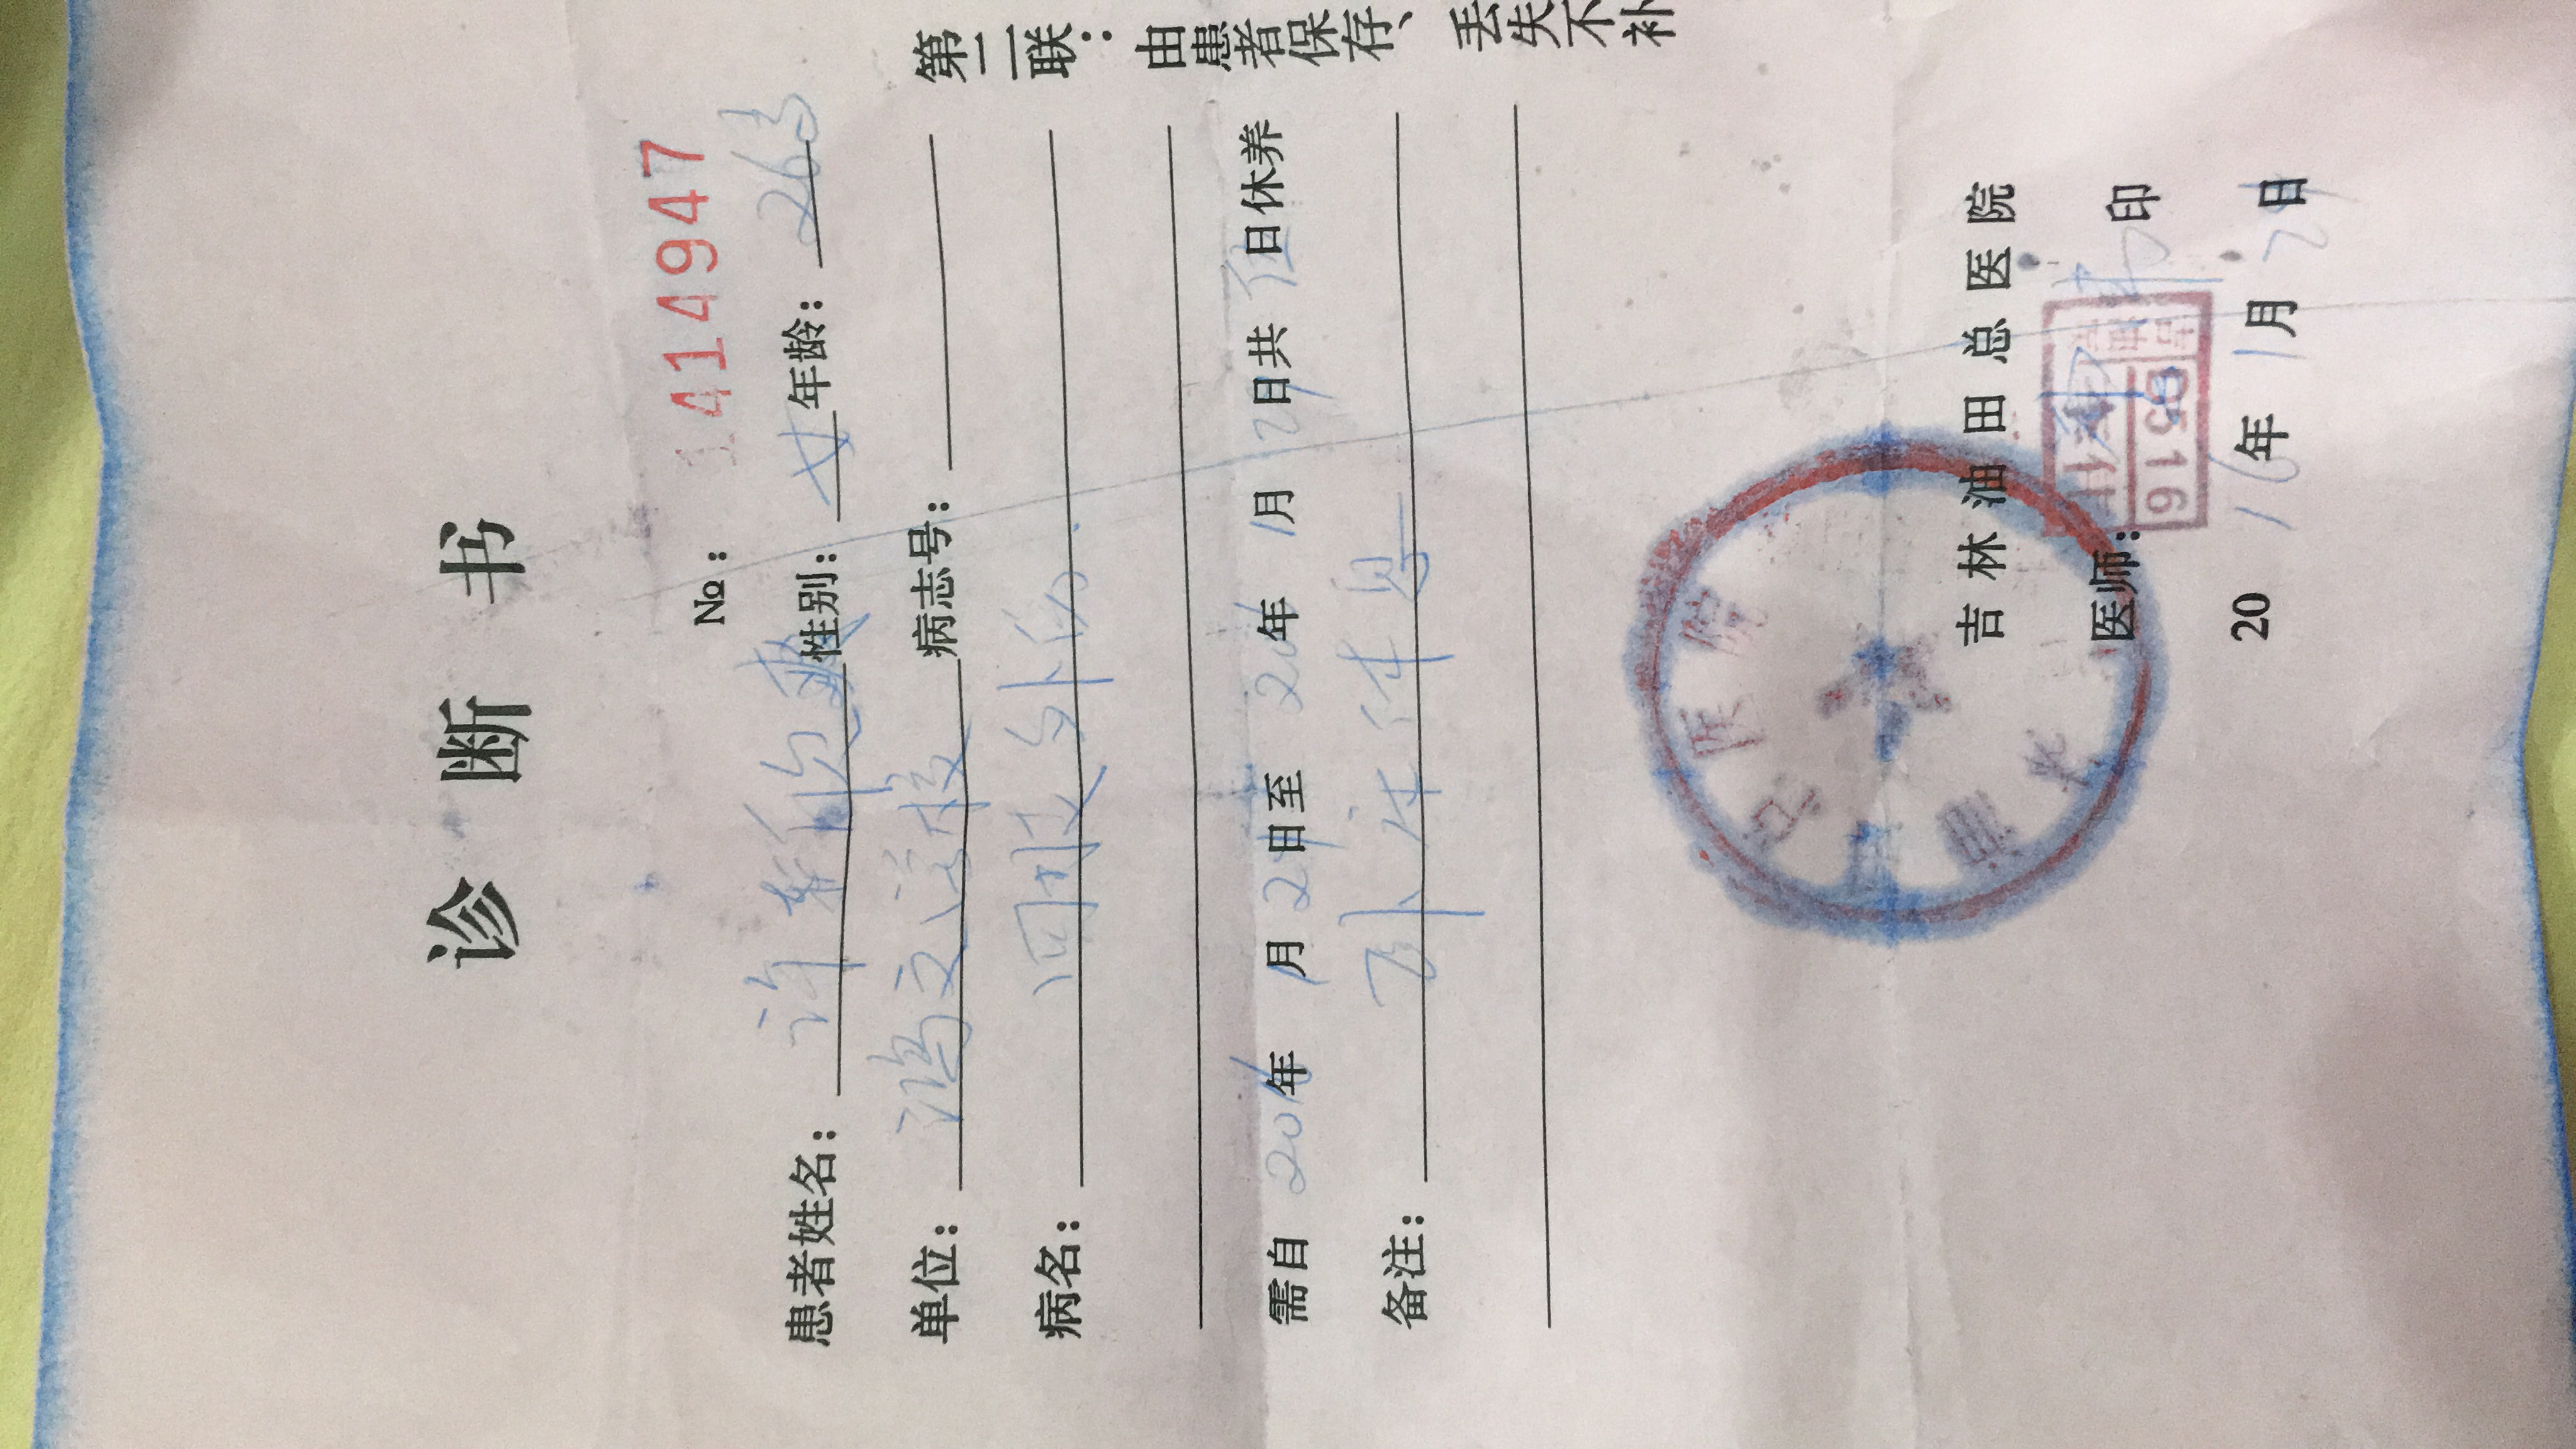 诊断书
№：1414947
患者姓名：许 欣爽 性别：女 年龄：26岁
单位：鸿文学校 病志号：
病名：四肢外伤.
需自2016年1月24日至2016年1月29日共伍日休养
备注：卧床休息
第二联：由患者保存、丢失不补
总医院
吉林油田总医院
医师： 印
0516
2016年1月24日